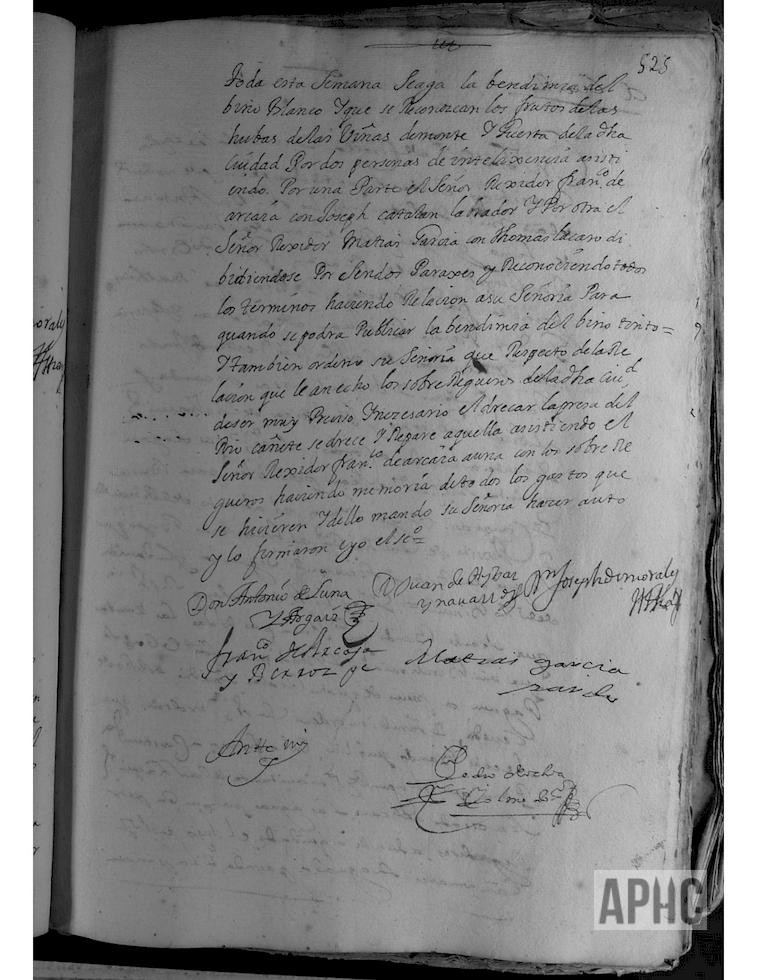 525
Toda esta Semana Seaga la bendimia del
bino Blanco Y que se Reconoscan los frutos delas
hubas de las Viñas de monte Y Huerta dela dha
Ciudad Por dos personas de intelixencia asisti
endo Por una Parte el Señor Rexidor franco de
arcaia con Joseph catalan labrador Y Por otra el
Señor Rexidor Matias Garcia con thomas lacaro di
bidiendose Por Sendos Paraxes y Reconociendo todos
los terminos haciendo Relacion asu Señoria Para
quando se podra Publicar la bendimia del bino tinto =
Y tambien ordeno su Señoria que Respecto dela Re
lacion que le an echo los sobre Regueros dela dha Ciud
de ser muy Preciso Y nezesario el drecar la presa del
Rio cañete se drece Y Repare aquella asistiendo el
Señor Rexidor franco de arcaia auna con los sobre Re
gueros haciendo memoria de todos los gastos que
se hicieren Y dello mando su Señoria hazer auto
y lo firmaron e yo el sso
Don Antonio de Luna
Y Argaiz
D Juan de Aybar
y navarr
Joseph de moraly
franco de Arcaya
y Berroz
Matias garcia
Ante mi
Pedro
APHG